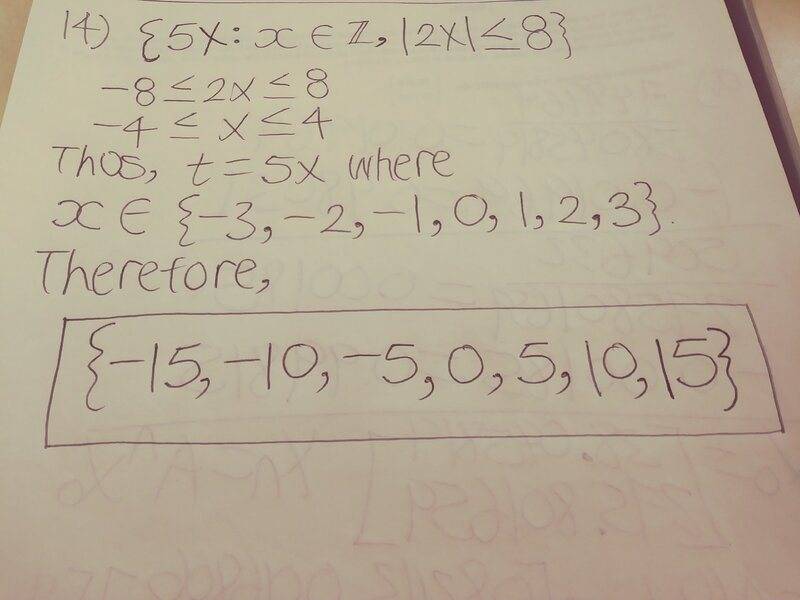 14) {5x: x ∈ ℤ, |2x| ≤ 8}
-8 ≤ 2x ≤ 8
-4 ≤ x ≤ 4
Thus, t = 5x where
x ∈ {-3, -2, -1, 0, 1, 2, 3}.
Therefore,
{-15, -10, -5, 0, 5, 10, 15}